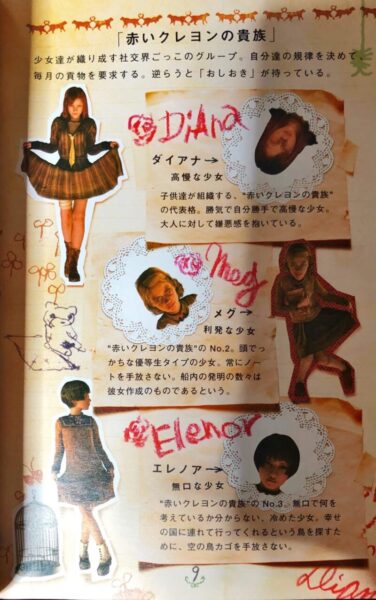 「赤いクレヨンの貴族」
少女達が織り成す社交界ごっこのグループ。自分達の規律を決めて、
毎月の貢物を要求する。逆らうと「おしおき」が待っている。
Diana
ダイアナ→
高慢な少女
子供達が組織する、"赤いクレヨンの貴族"
の代表格。勝気で自分勝手で高慢な少女。
大人に対して嫌悪感を抱いている。
Meg
メグ→
利発な少女
"赤いクレヨンの貴族"の No.2。頭でっ
かちな優等生タイプの少女。常にノー
トを手放さない。船内の発明の数々は
彼女作成のものであるという。
Elenor
エレノアー→
無口な少女
"赤いクレヨンの貴族"の No.3。無口で何を
考えているか分からない、冷めた少女。幸せ
の国に連れて行ってくれるという鳥を探すた
めに、空の鳥カゴを手放さない。
9